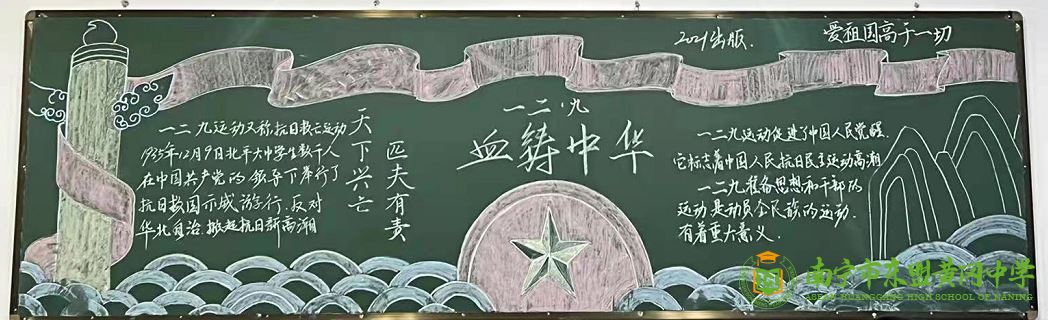 2021出版.
爱祖国高于一切
一二·九
血铸中华
天下兴亡
匹夫有责
一二九运动又称抗日救亡运动
1935年12月9日北平大中学生数千人
在中国共产党的领导下举行了
抗日救国示威游行.反对
华北自治.掀起抗日新高潮
一二九运动促进了中国人民觉醒.
它标志着中国人民抗日民主运动高潮
一二九准备思想和干部队
运动是动员全民族的运动.
有着重大意义.
南宁市东盟黄冈中学
ASEAN HUANGGANG HIGH SCHOOL OF NANNING